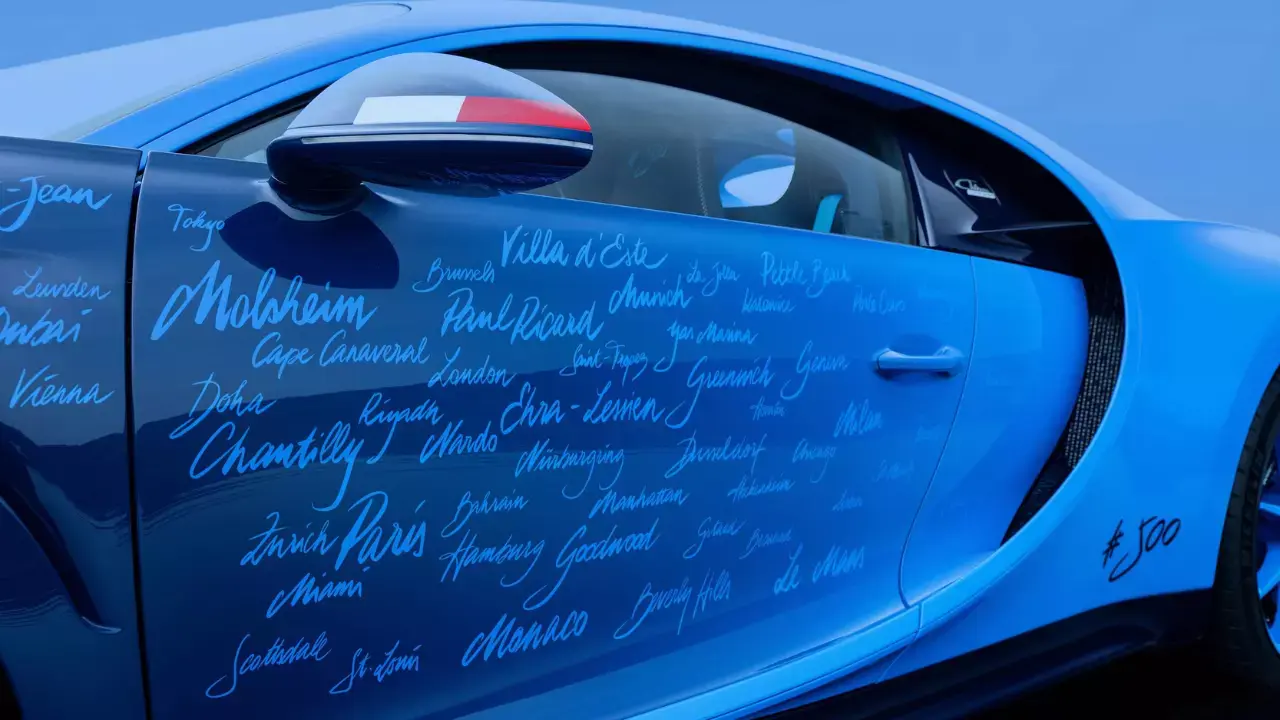 -Jean
Tokyo
Villa d'Este
Brussels
Pebble Beach
Leuvden
Molsheim
Munich
Dubai
Paul Ricard
Yas Marina
Cape Canaveral
London
Saint-Tropez
Vienna
Greenwich
Geneva
Doha
Riyadh
Ehra-Lessien
Milan
Chantilly
Nardo
Nürburgring
Dusseldorf
Chicago
Bahrain
Manhattan
Zurich
Paris
Hamburg
Goodwood
#500
Miami
Beverly Hills
Le Mans
Monaco
Scottsdale
St. Louis